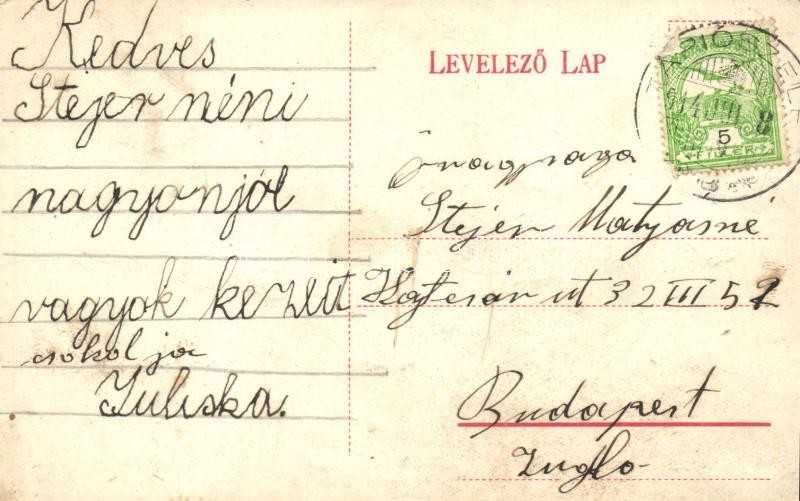 Kedves
Stejer néni
nagyonjól
vagyok kezeit
csokolja
Juliska.
LEVELEZŐ LAP
5
FILLÉR
8
Stejer Matyasné
ut 32 III 52
Budapest
Zuglo